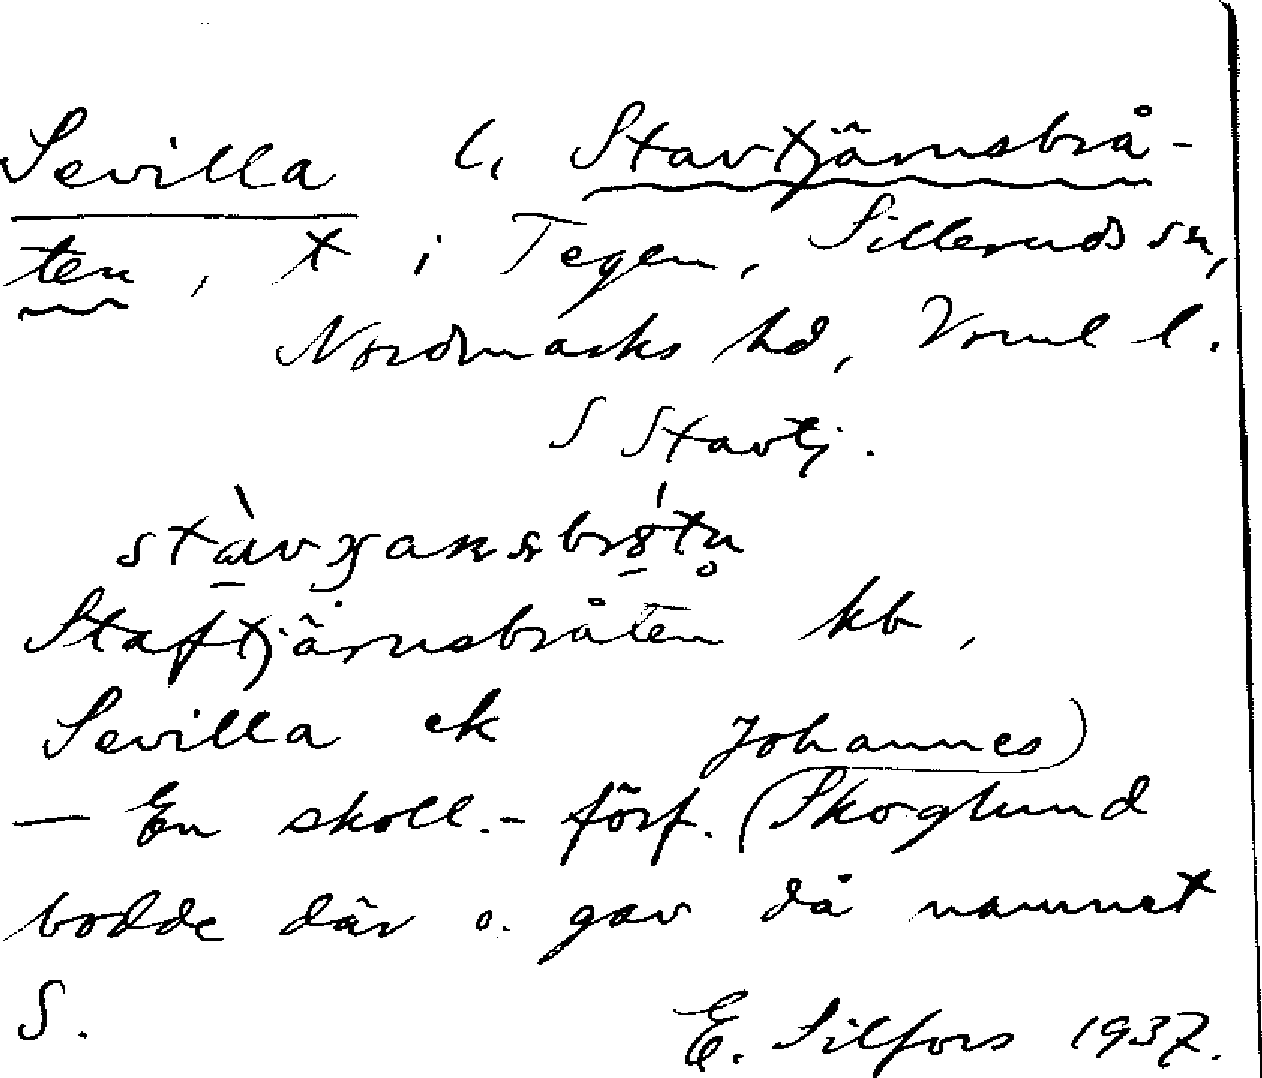 Sevilla l. Stavtjärnsbrå-
ten, t i Tegen, Silleruds sn,
Nordmarks hd, Vrml l.
S Stavtj.
Staftjärnsbråten kb,
Sevilla ek
Johannes
— En skoll.- förf. (Skoglund)
bodde där o. gav då namnet
S.
E. Silfors 1937.